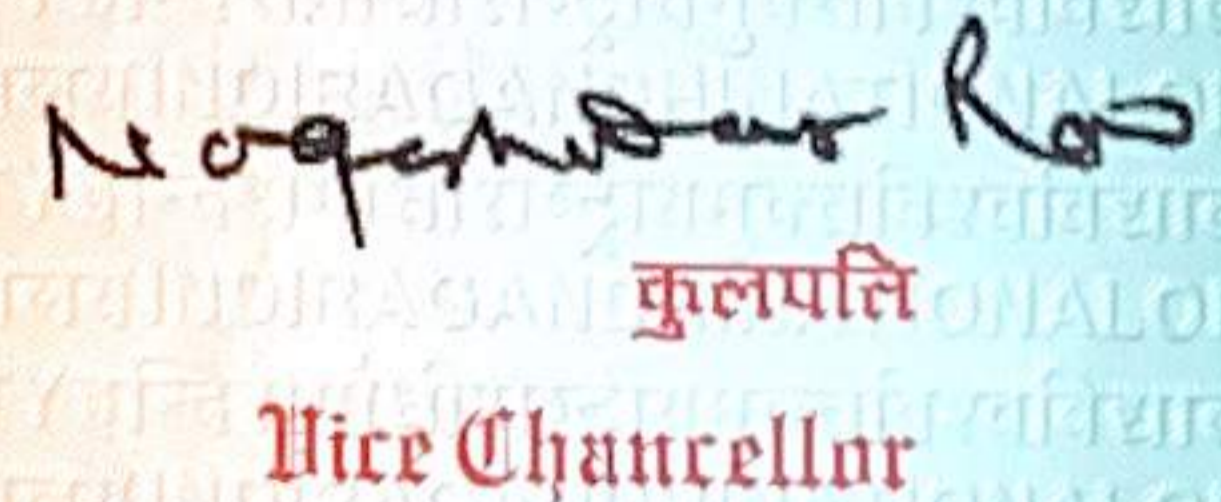 Nageshwar Rao
कुलपति
Vice Chancellor